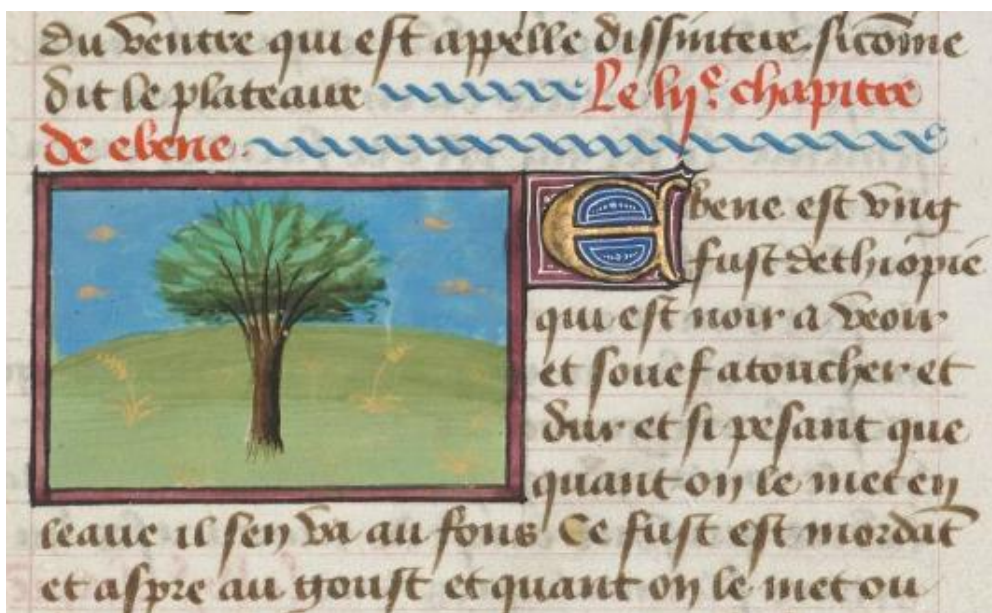 du ventre qui est appelle dissintere. sicōme
dit le plateaire Le lijᵉ. chapitre
de ebene.
Ebene est vng
fust dethiopie
qui est noir a veoir
et souef atoucher et
dur et si pesant que
quant on le met en
leaue il sen va au fons Ce fust est mordāt
et aspre au goust et quant on le met ou